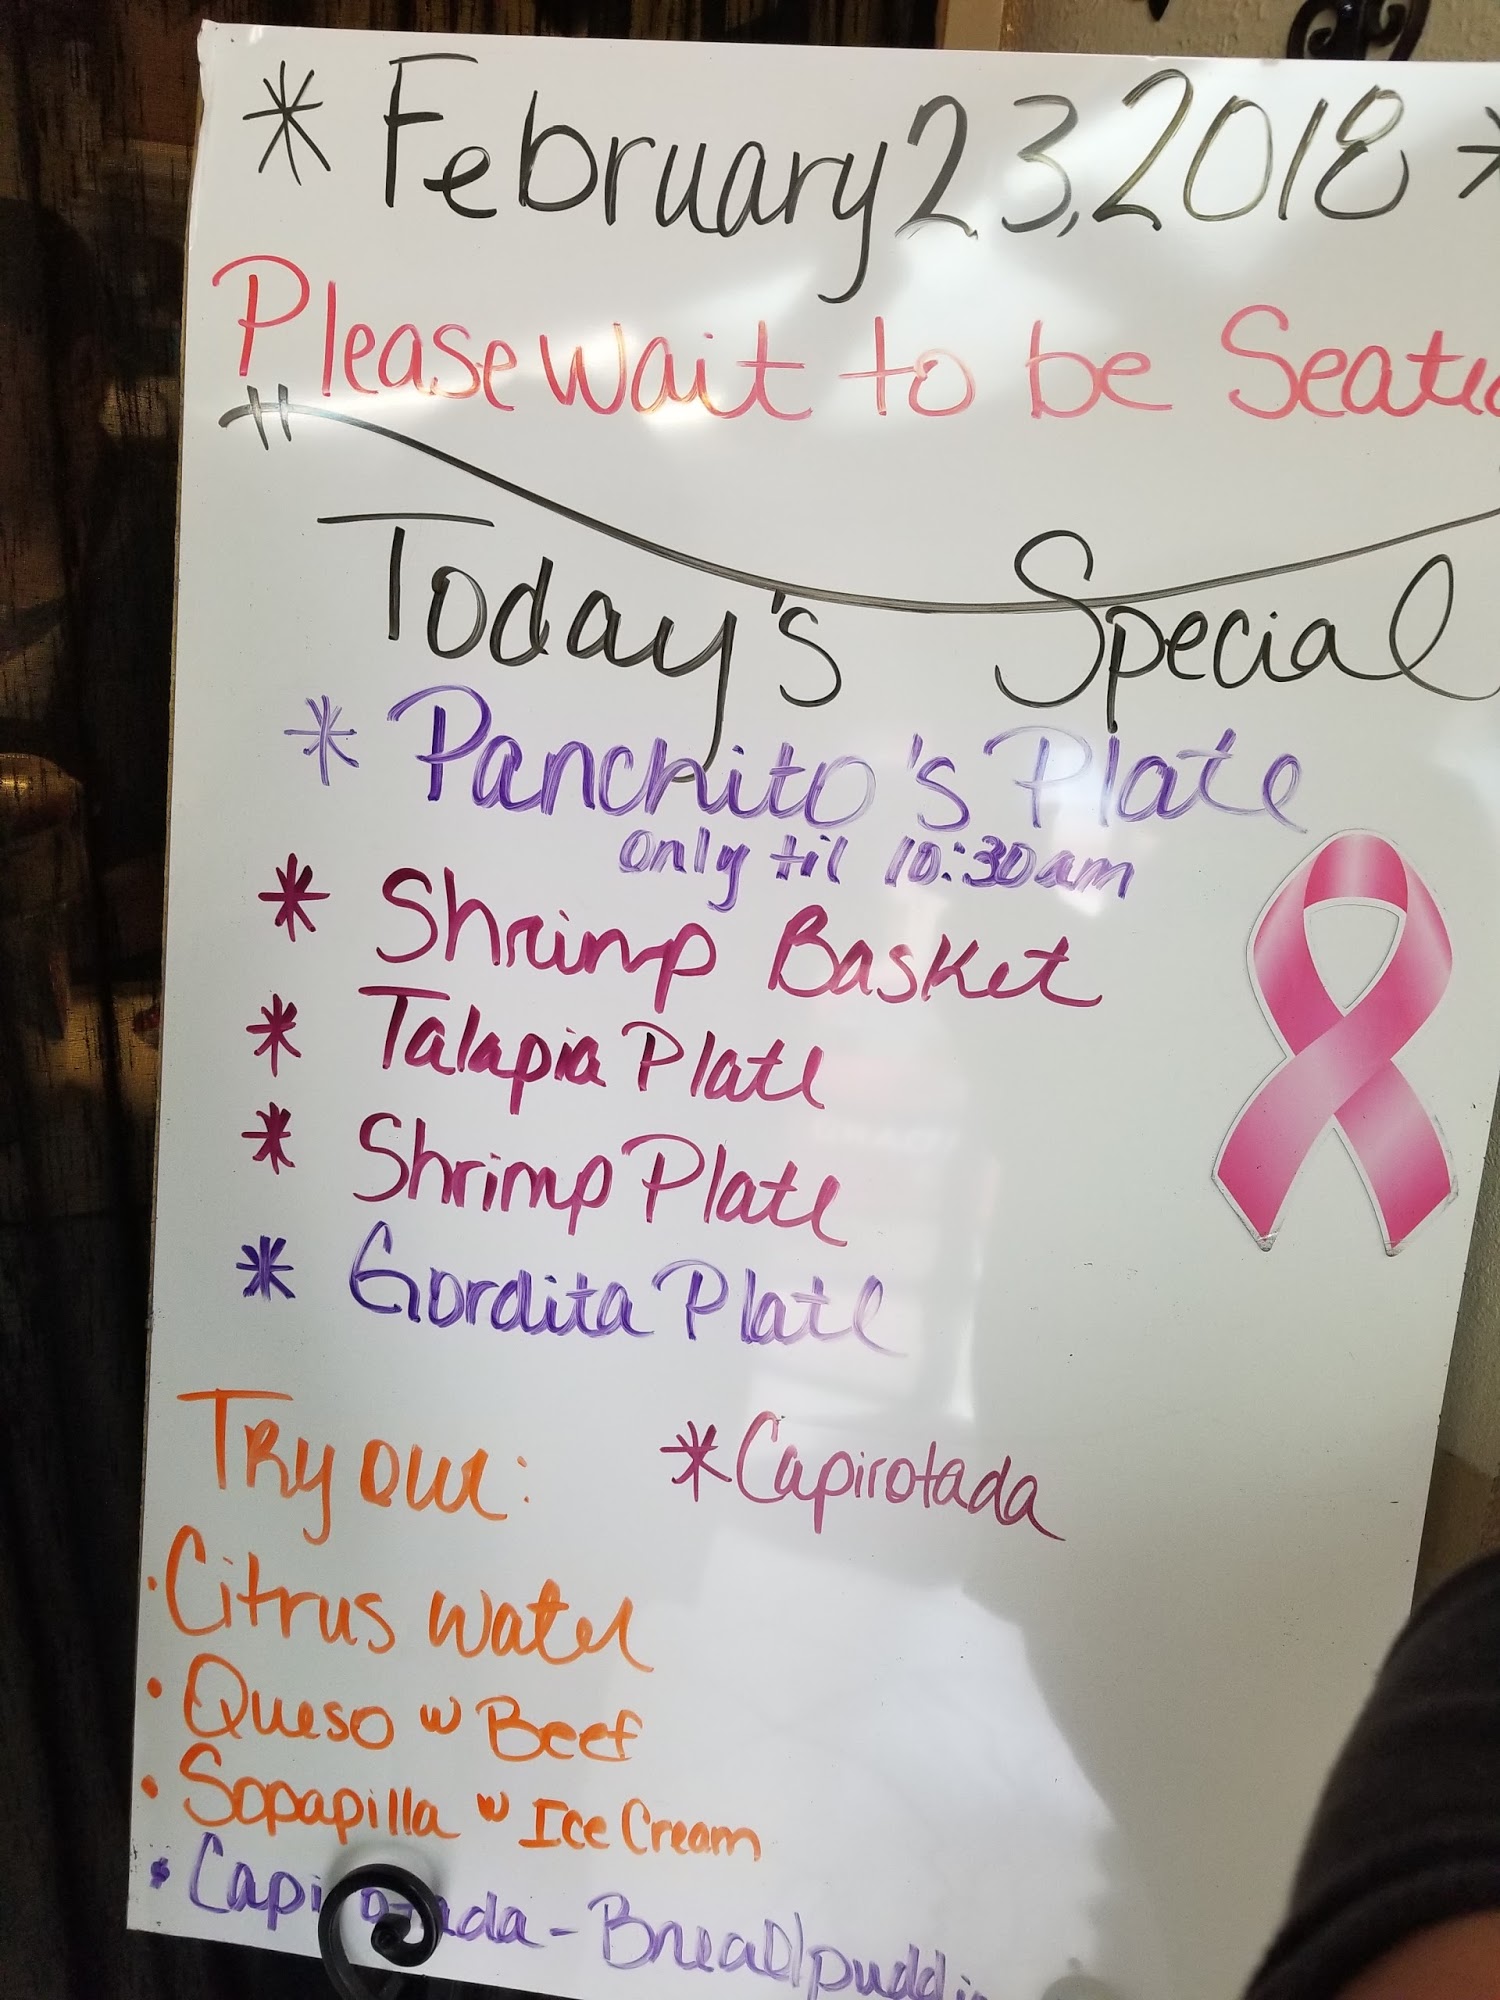 * February 23, 2018 *
Please wait to be Seate
Today's Special
* Panchito's Plate
only til 10:30am
* Shrimp Basket
* Talapia Plate
* Shrimp Plate
* Gordita Plate
Try our: *Capirotada
· Citrus water
· Queso w Beef
· Sopapilla w Ice Cream
· Capirotada - Bread/puddi